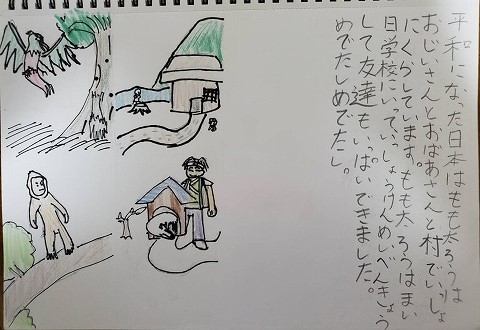 平和になった日本はもも太ろうは
おじいさんとおばあさんと村でいっしょ
にくらしています。もも太ろうはまい
日学校にいっていっしょうけんめいべんきょう
して友達もいっぱいできました。
めでたしめでたし。